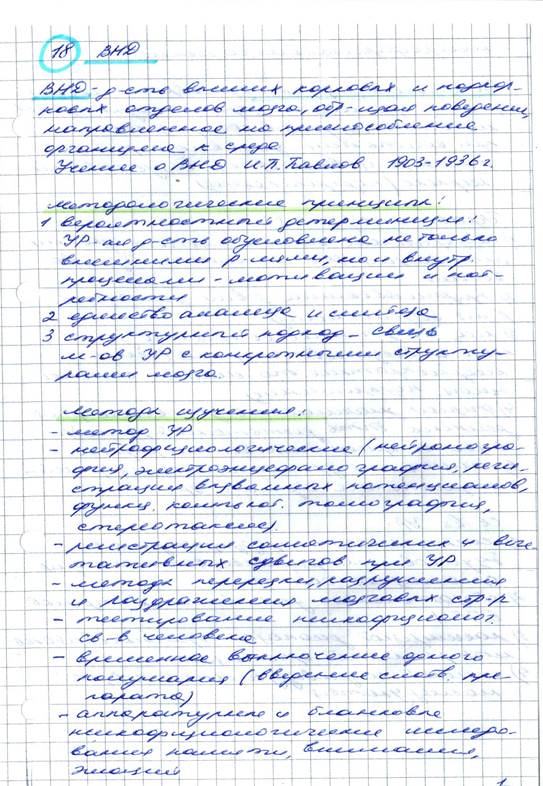 18 ВНД
ВНД - д-сть высших корковых и подкор-
ковых отделов мозга, обр-щая поведение,
направленное на приспособление
организма к среде
Учение о ВНД И.П. Павлов 1903-1936 г.
методологические принципы:
1 вероятностный детерминизм:
УР-ая д-сть обусловлена не только
внешними р-лями, но и внутр.
процессами - мотивации и пот-
ребности
2 единство анализа и синтеза
3 структурный подход - связь
м-ов УР с конкретными структу-
рами мозга.
Методы изучения:
- метод УР
- нейрофизиологические (нейрогра-
фия, электроэнцефалография, реги-
страция вызванных потенциалов,
функц. компьют. томография,
стереотаксис)
- регистрация соматических и веге-
тативных сдвигов при УР
- методы перерезки, разрушения
и раздражения мозговых стр-р
- тестирование психофизиолог.
св-в человека
- временное выключение одного
полушария (введение снотв. пре-
парата)
- аппаратурные и бланковые
психофизиологические исследо-
вания памяти, внимания,
эмоций